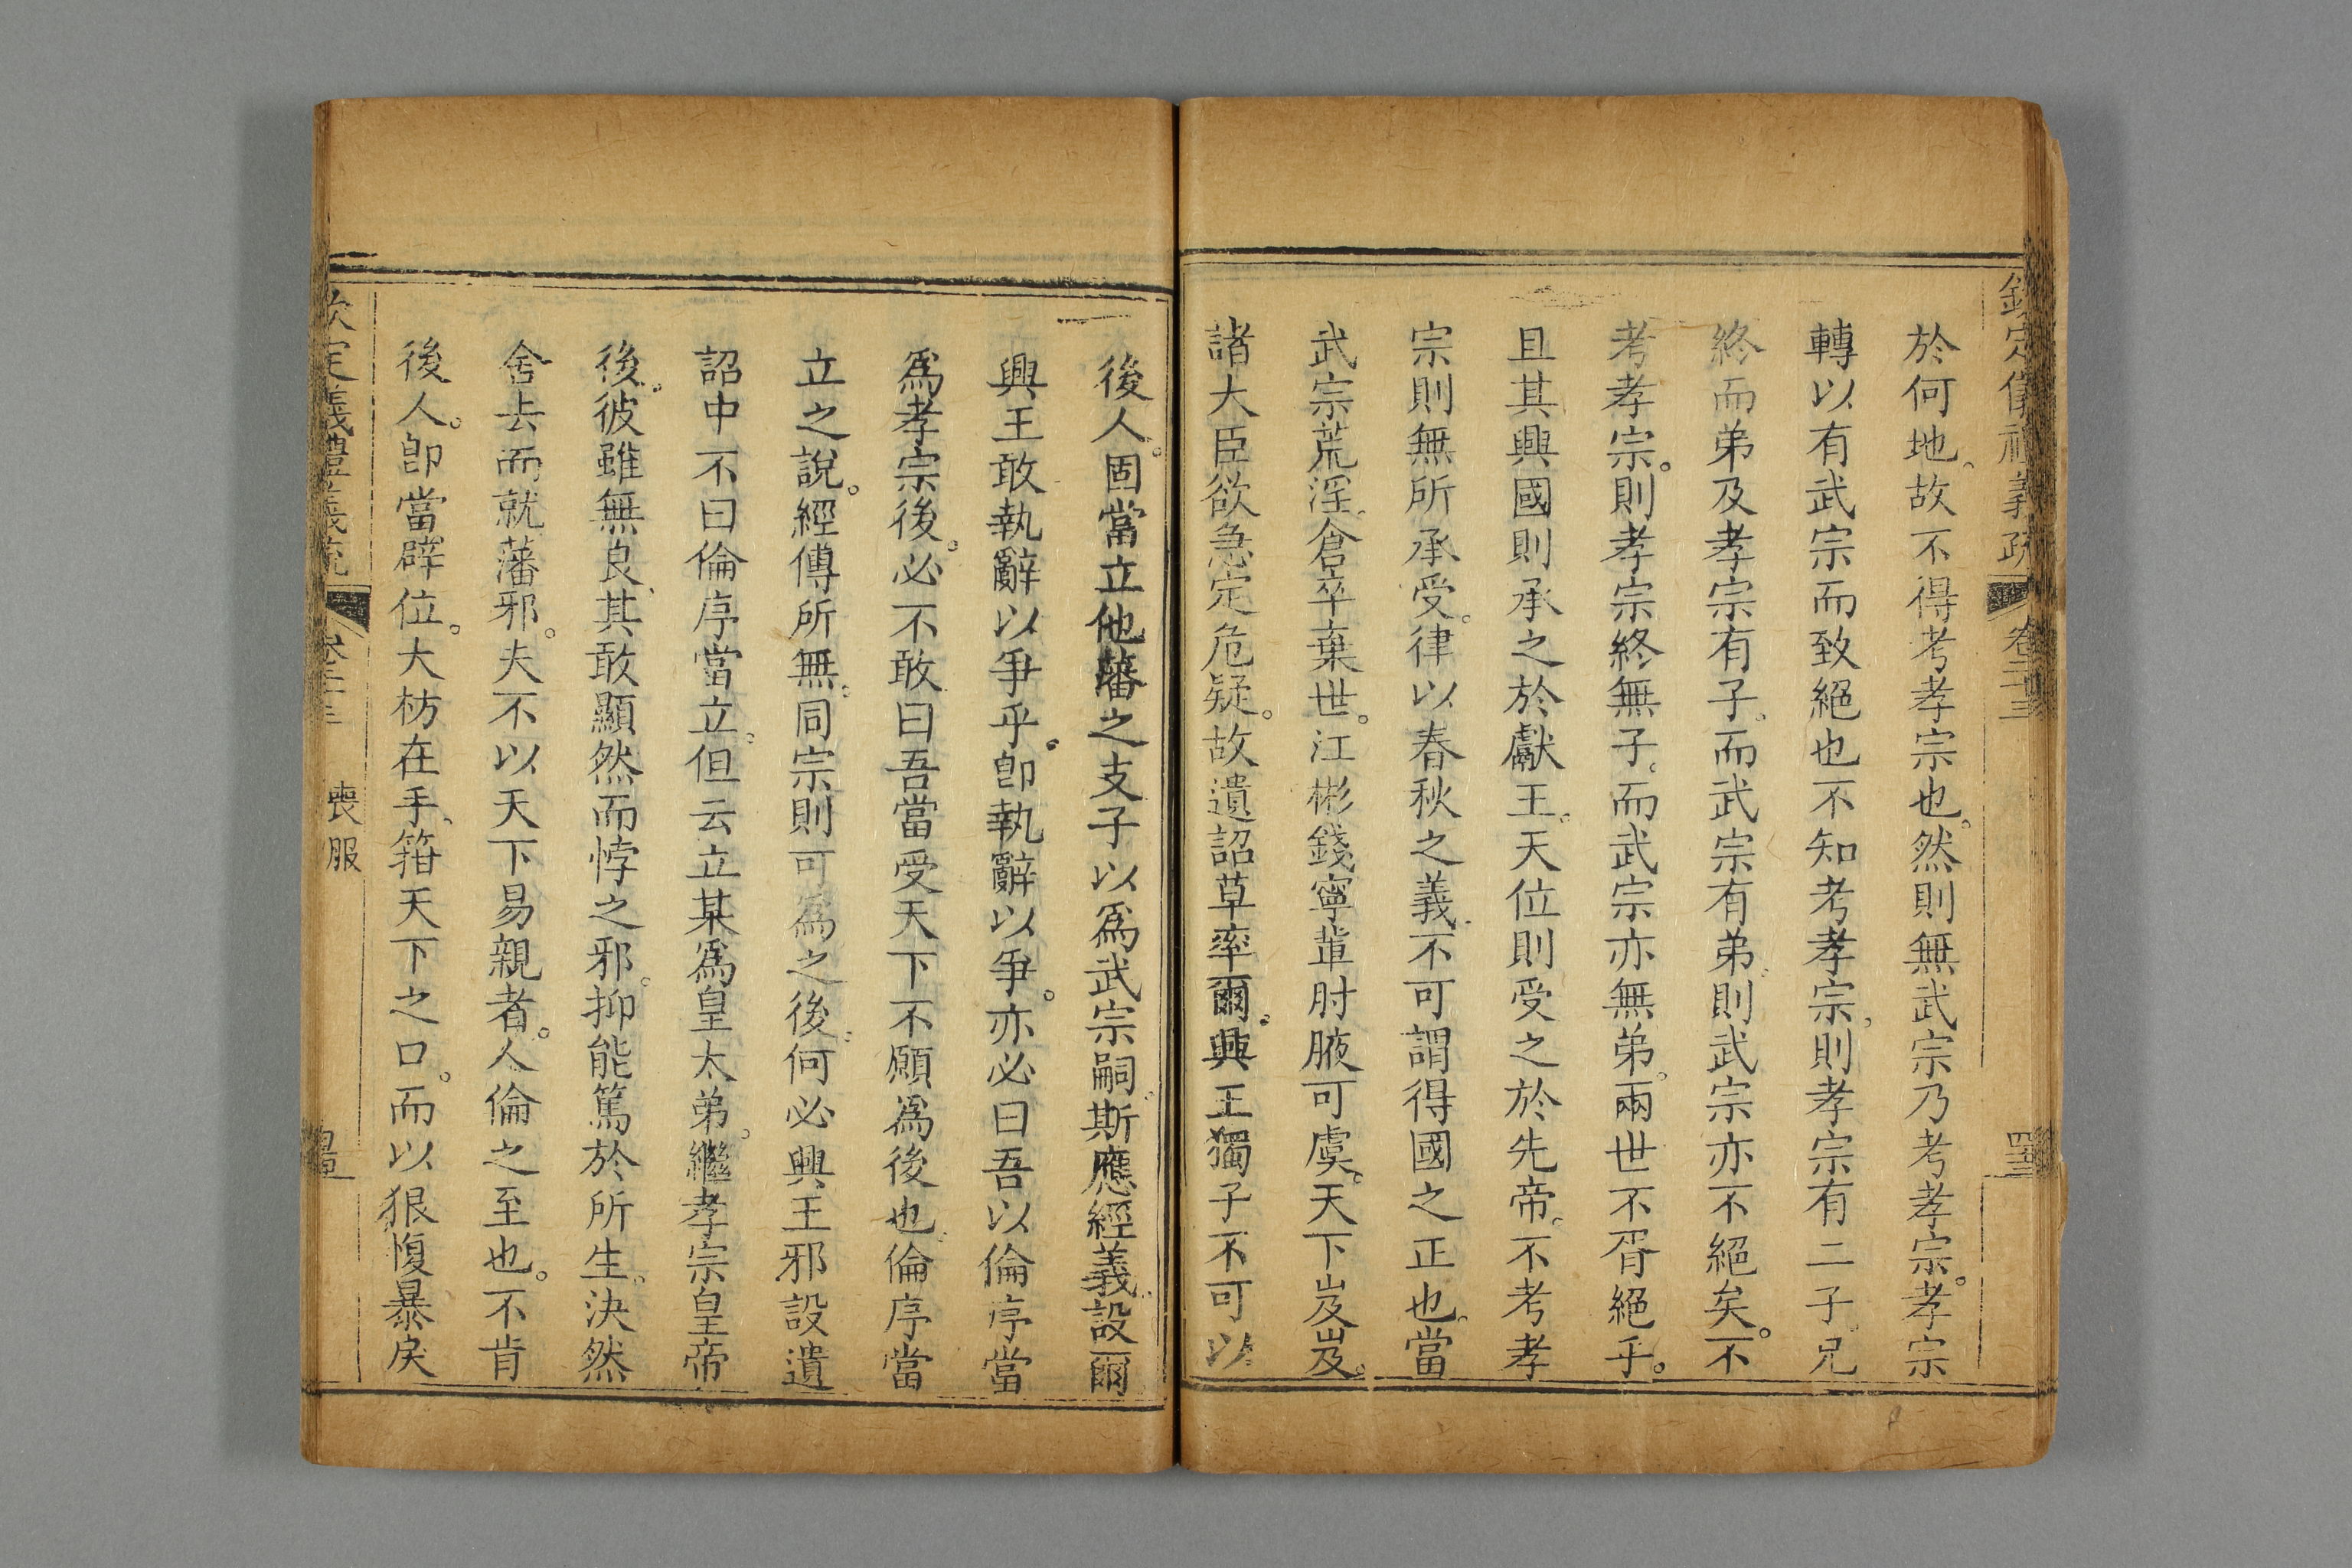 欽定儀禮義疏 卷二十三
於何地。故不得考孝宗也。然則無武宗乃考孝宗。孝宗
轉以有武宗而致絕也不知考孝宗。則孝宗有二子。兄
終而弟及孝宗有子。而武宗有弟。則武宗亦不絕矣。不
考孝宗。則孝宗終無子。而武宗亦無弟。兩世不胥絕乎。
且其興國則承之於獻王。天位則受之於先帝。不考孝
宗則無所承受。律以春秋之義。不可謂得國之正也。當
武宗荒淫。倉卒棄世。江彬錢寧軰肘腋可虞。天下岌岌。
諸大臣欲急定危疑。故遺詔草率爾。興王獨子不可以
後人。固當立他藩之支子以爲武宗嗣。斯應經義。設爾
興王敢執辭以爭乎。卽執辭以爭。亦必曰吾以倫序當
爲孝宗後。必不敢曰吾當受天下不願爲後也。倫序當
立之說。經傳所無。同宗則可爲之後。何必興王邪設遺
詔中不曰倫序當立。但云立某爲皇太弟。繼孝宗皇帝
後。彼雖無良、其敢顯然而悖之邪。抑能篤於所生。決然
舍去而就藩邪。夫不以天下易親者。人倫之至也。不肯
後人。卽當辟位。大枋在手、箝天下之口。而以狠愎暴戾
欽定儀禮義疏 卷二十三 喪服